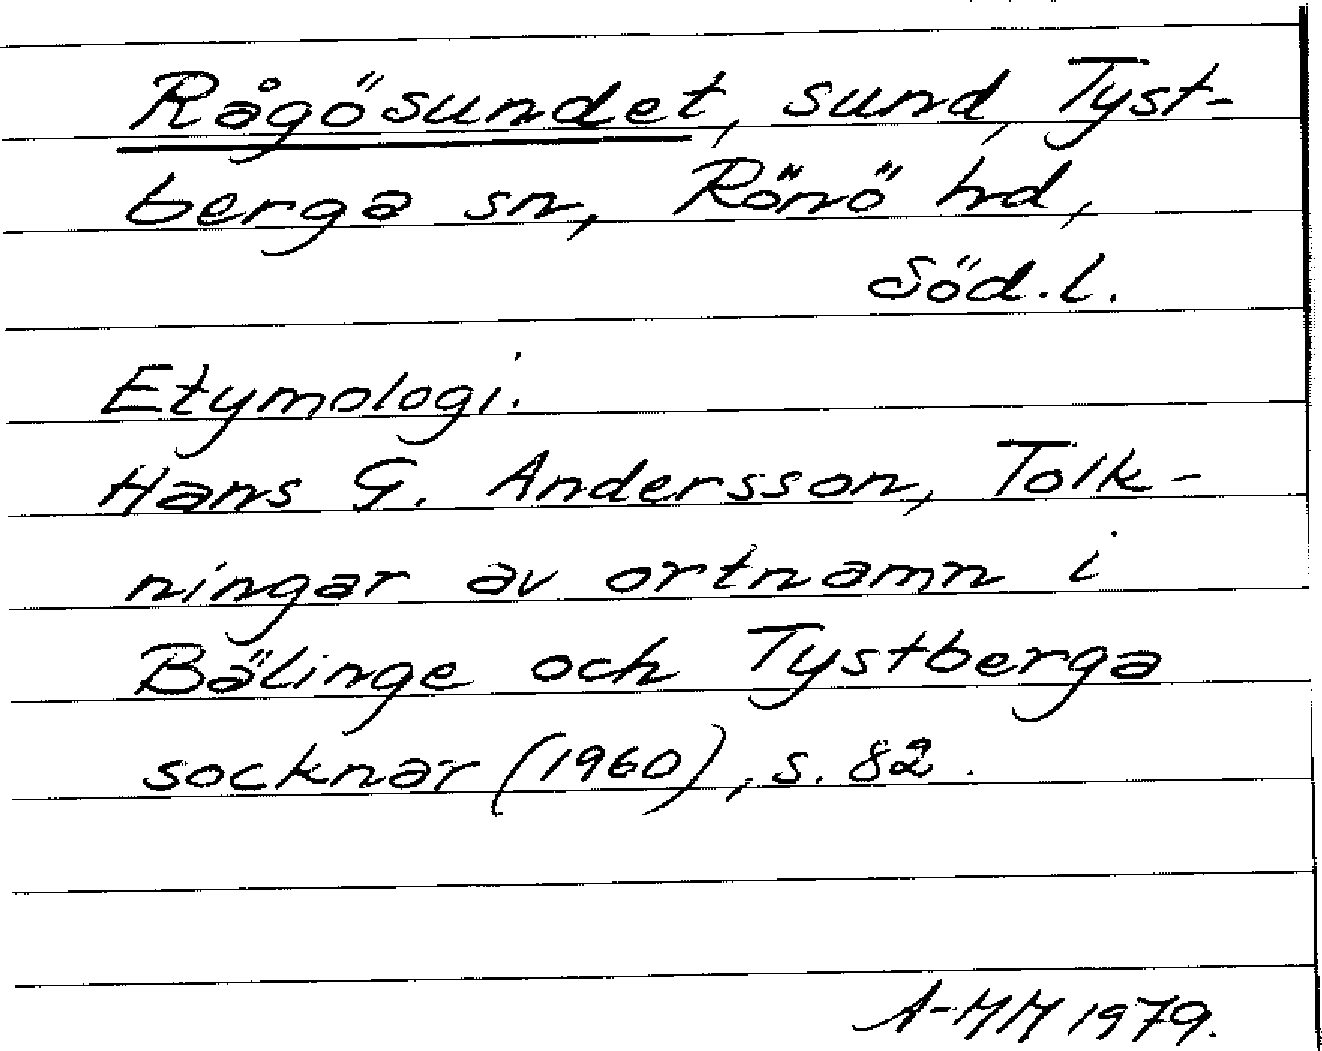 Rågösundet, sund, Tyst-
berga sn, Rönö hd,
Söd.l.
Etymologi.
Hans G. Andersson, Tolk-
ningar av ortnamn i
Bälinge och Tystberga
socknar (1960), s. 82.
A-MM 1979.